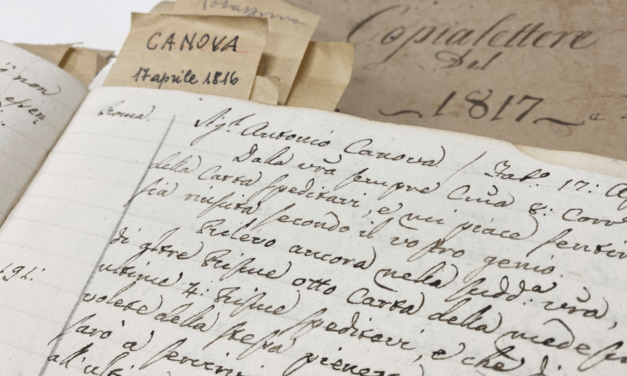 CANOVA
17 aprile 1816
Copialettere
Del
1817
non
Roma.
Sigr. Antonio Canova / Fab.º 17: Ap
Dalla vrã sempre Cara 8: Corr
della Carta speditavi, e mi piace sentir
sia riuscita secondo il vostro genio.
Rilevo ancora nella sudd.a vrã,
di altre Risme otto Carta della medesi
ultime 4: Risme speditavi, e che
volete della stessa
farò a servir